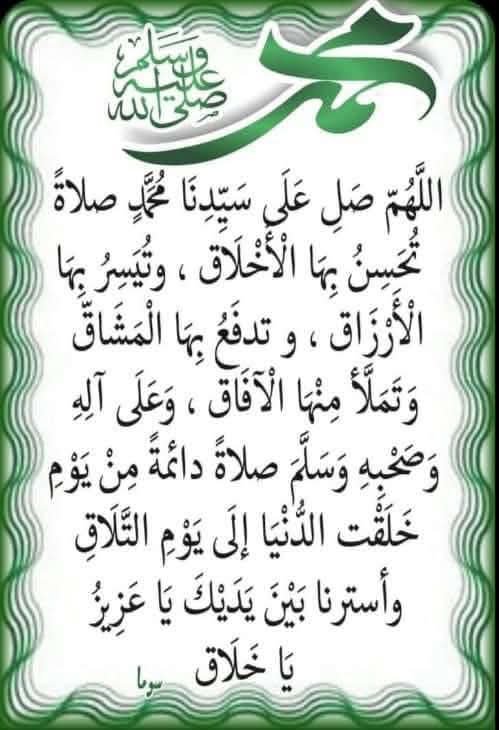 محمد
صلى الله عليه وسلم
اللَّهُمّ صَلِ عَلَى سَيِّدِنَا مُحَمَّدٍ صلاةً
تُحَسِنُ بِهَا الْأَخْلَاق ، وتُيَسِرُ بِهَا
الْأَرْزَاق ، و تدفَعُ بِهَا الْمَشَاقّ
وَتَمَلَأ مِنْهَا الْآفَاق ، وَعَلَى آلِهِ
وَصَحْبِهِ وَسَلَّمَ صلاةً دائمةً مِنْ يَوْمِ
خَلَقْت الدُّنْيَا إلَى يَوْمِ التَّلَاقِ
وأسترنا بَيْنَ يَدَيْكَ يَا عَزِيزُ
يَا خَلَاق
سوما